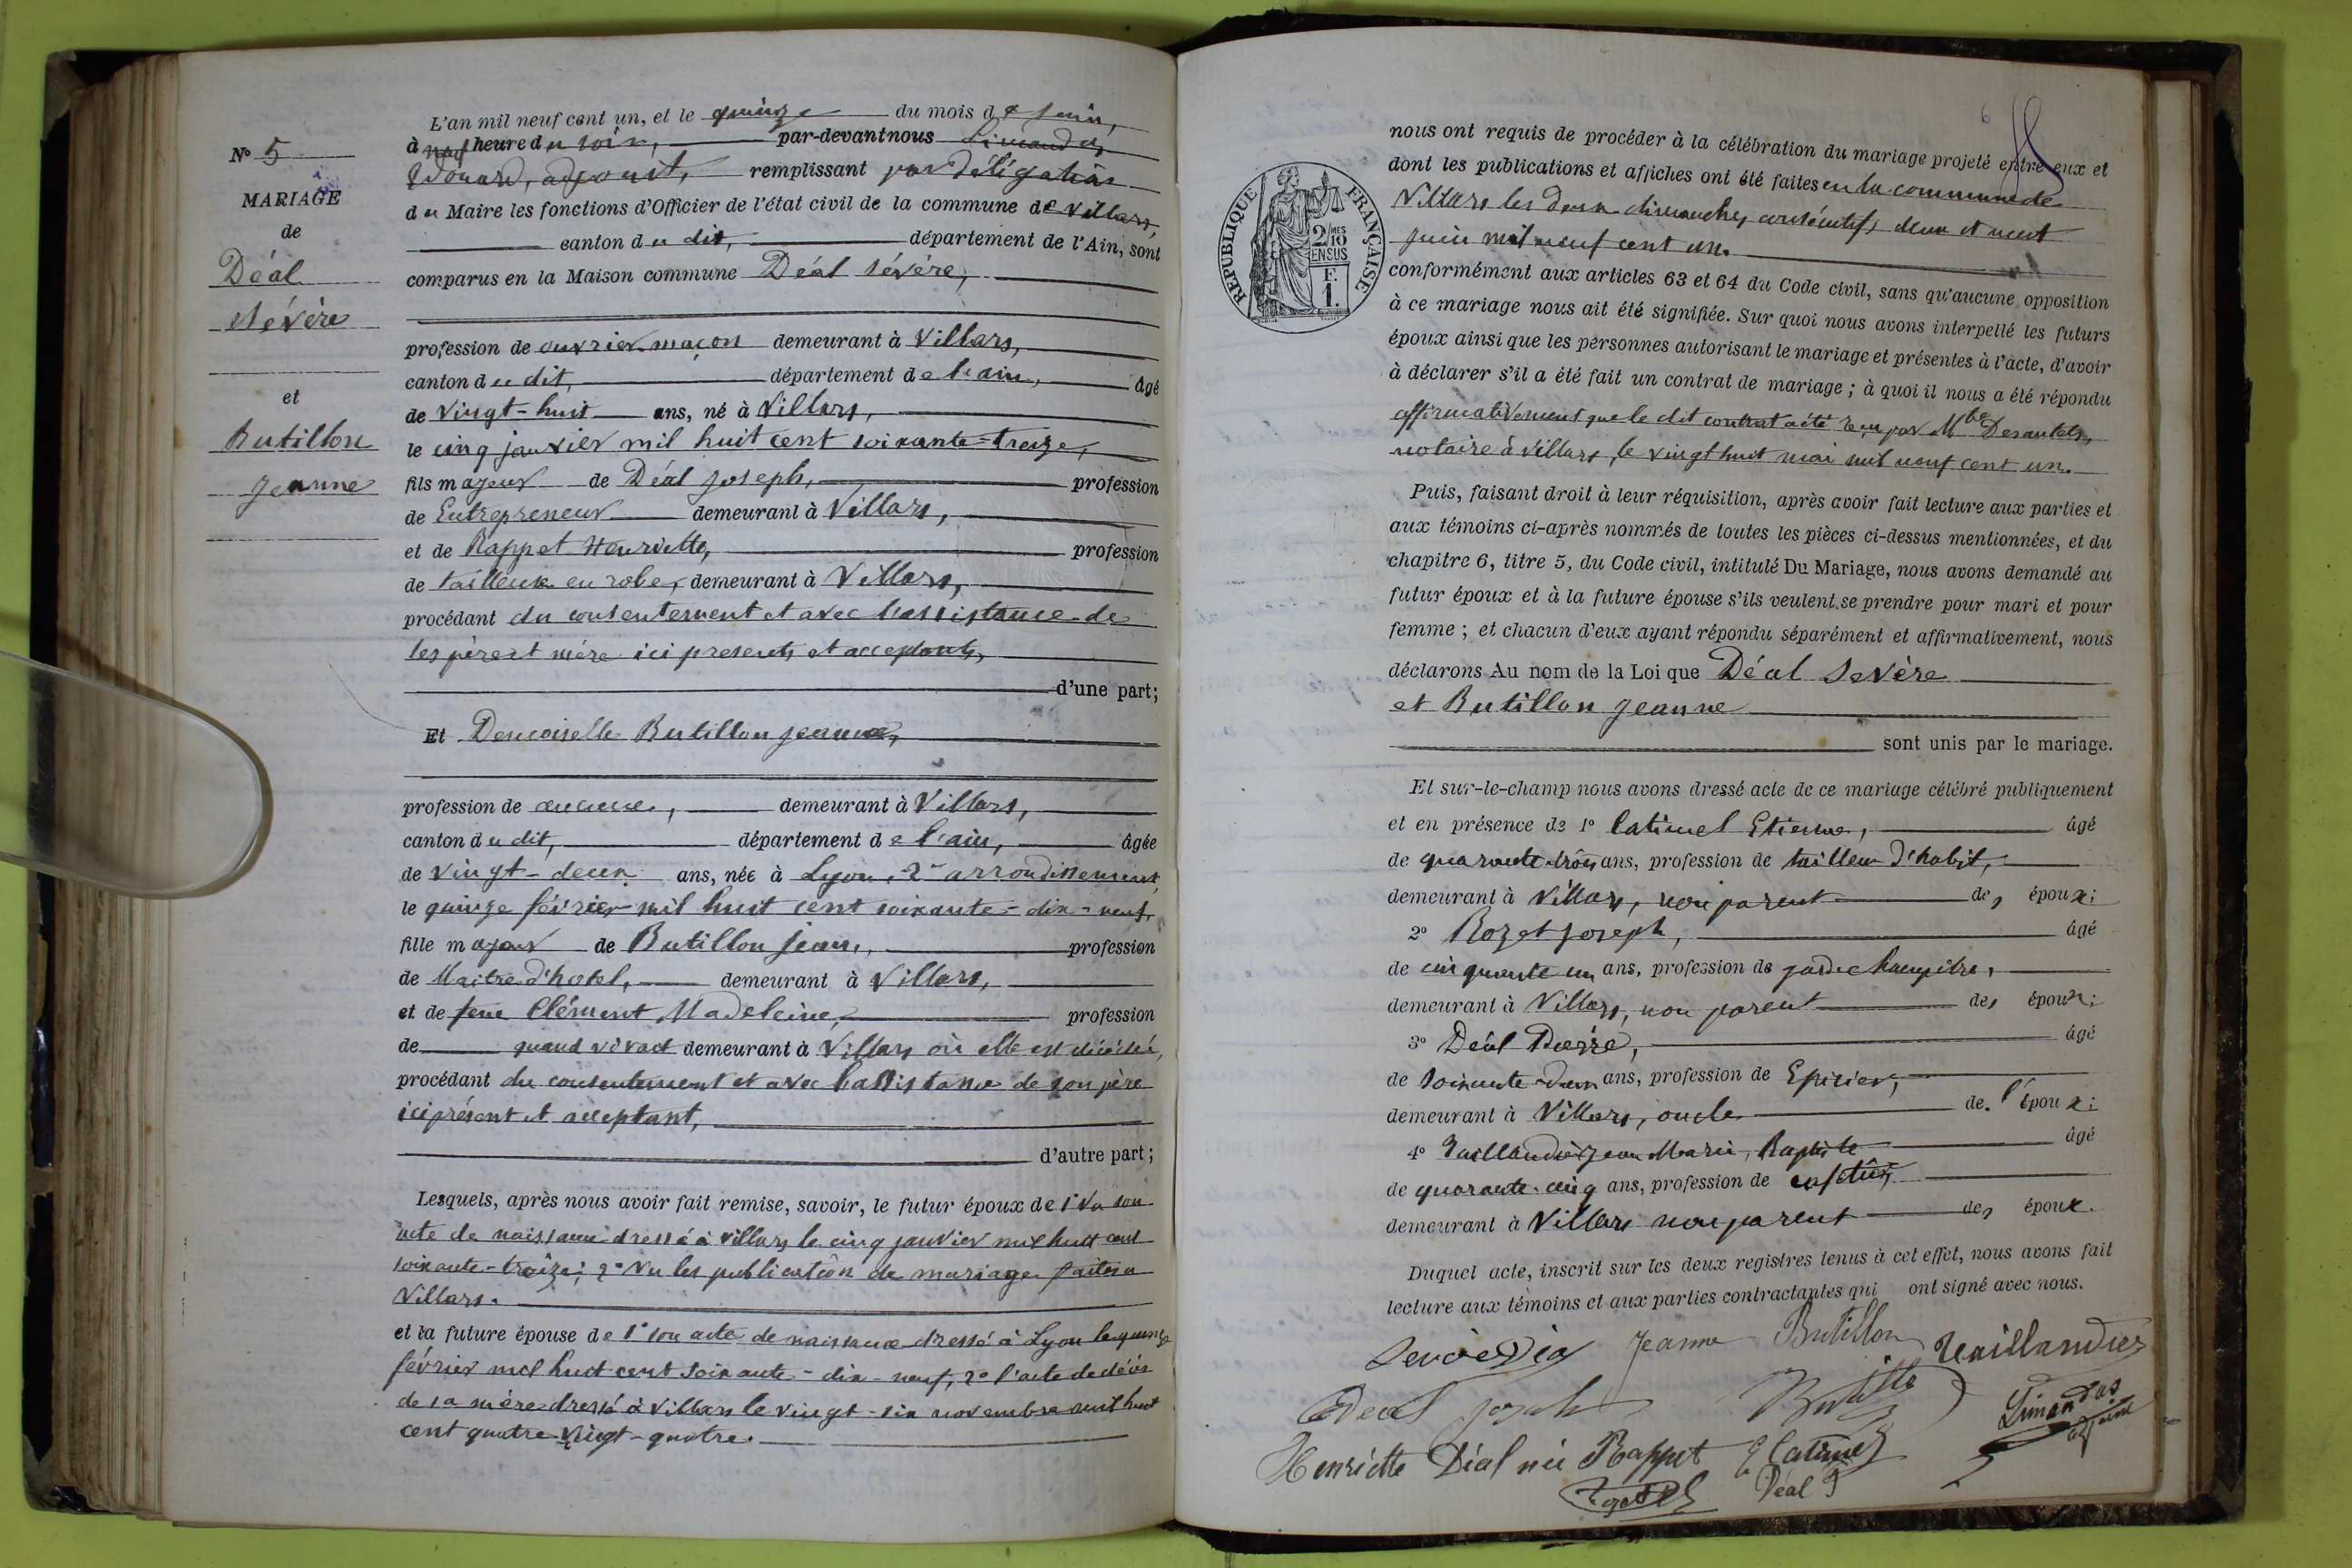 N° 5
MARIAGE
de
Déal
Sévère
et
Butillon
Jeanne
L'an mil neuf cent un, et le quinze du mois de Juin,
à neuf heure du soir, par-devant nous Limandas
Edouard, adjoint, remplissant par délégation
du Maire les fonctions d'Officier de l'état civil de la commune de Villars,
canton du dit, département de l'Ain, sont
comparus en la Maison commune Déal Sévère,
profession de ouvrier maçon demeurant à Villars,
canton du dit, département de l'ain, âgé
de vingt-huit ans, né à Villars,
le cinq janvier mil huit cent soixante-treize,
fils majeur de Déal Joseph, profession
de Entrepreneur demeurant à Villars,
et de Rappet Henriette, profession
de tailleuse en robe, demeurant à Villars,
procédant du consentement et avec l'assistance de
ses père et mère ici presents et acceptants,
d'une part;
Et Demoiselle Butillon Jeanne,
profession de aucune, demeurant à Villars,
canton du dit, département de l'ain, âgée
de vingt-deux ans, née à Lyon, 2e arrondissement
le quinze février mil huit cent soixante-dix-neuf,
fille majeur de Butillon Jean, profession
de Maitre d'hotel, demeurant à Villars,
et de feue Clément Madeleine, profession
de quand vivait demeurant à Villars où elle est décédée,
procédant du consentement et avec l'assistance de son père
ici présent et acceptant,
d'autre part;
Lesquels, après nous avoir fait remise, savoir, le futur époux de 1° Vu son
acte de naissance dressé à Villars le cinq janvier mil huit cent
soixante-treize; 2° Vu les publication de mariage faites a
Villars.
et la future épouse de 1° son acte de naissance dressé à Lyon le quinze
février mil huit cent soixante-dix-neuf, 2° l'acte de décès
de sa mère dressé à Villars le vingt-six novembre mil huit
cent quatre vingt-quatre.
REPUBLIQUE FRANÇAISE
2/10 MES
EN SUS
F.
1.
nous ont requis de procéder à la célébration du mariage projeté entre eux et
dont les publications et affiches ont été faites en la commune de
Villars les deux dimanches consécutifs deux et neuf
juin mil neuf cent un.
conformément aux articles 63 et 64 du Code civil, sans qu'aucune opposition
à ce mariage nous ait été signifiée. Sur quoi nous avons interpellé les futurs
époux ainsi que les personnes autorisant le mariage et présentes à l'acte, d'avoir
à déclarer s'il a été fait un contrat de mariage; à quoi il nous a été répondu
affirmativement que le dit contrat a été reçu par Mtre Desautels,
notaire à Villars, le vingt huit mai mil neuf cent un.
Puis, faisant droit à leur réquisition, après avoir fait lecture aux parties et
aux témoins ci-après nommés de toutes les pièces ci-dessus mentionnées, et du
chapitre 6, titre 5, du Code civil, intitulé Du Mariage, nous avons demandé au
futur époux et à la future épouse s'ils veulent se prendre pour mari et pour
femme; et chacun d'eux ayant répondu séparément et affirmativement, nous
déclarons Au nom de la Loi que Déal Sevère
et Butillon Jeanne
sont unis par le mariage.
Et sur-le-champ nous avons dressé acte de ce mariage célébré publiquement
et en présence de 1° Catimel Etienne, âgé
de quarante-trois ans, profession de tailleur d'habit,
demeurant à Villars, non parent des époux;
2° Rozet Joseph, âgé
de cinquante un ans, profession de garde champêtre,
demeurant à Villars, non parent des époux;
3° Déal Pierre, âgé
de soixante-deux ans, profession de Epicier,
demeurant à Villars, oncle de l'époux;
4° Taillandier Jean Marie, Baptiste âgé
de quarante-cinq ans, profession de cafetier,
demeurant à Villars non parent des époux.
Duquel acte, inscrit sur les deux registres tenus à cet effet, nous avons fait
lecture aux témoins et aux parties contractantes qui ont signé avec nous.
Jeanne Butillon Taillandier
Déal Joseph Butillon Limandas
adjoint
Henriette Déal née Rappet E Catimel
Déal P